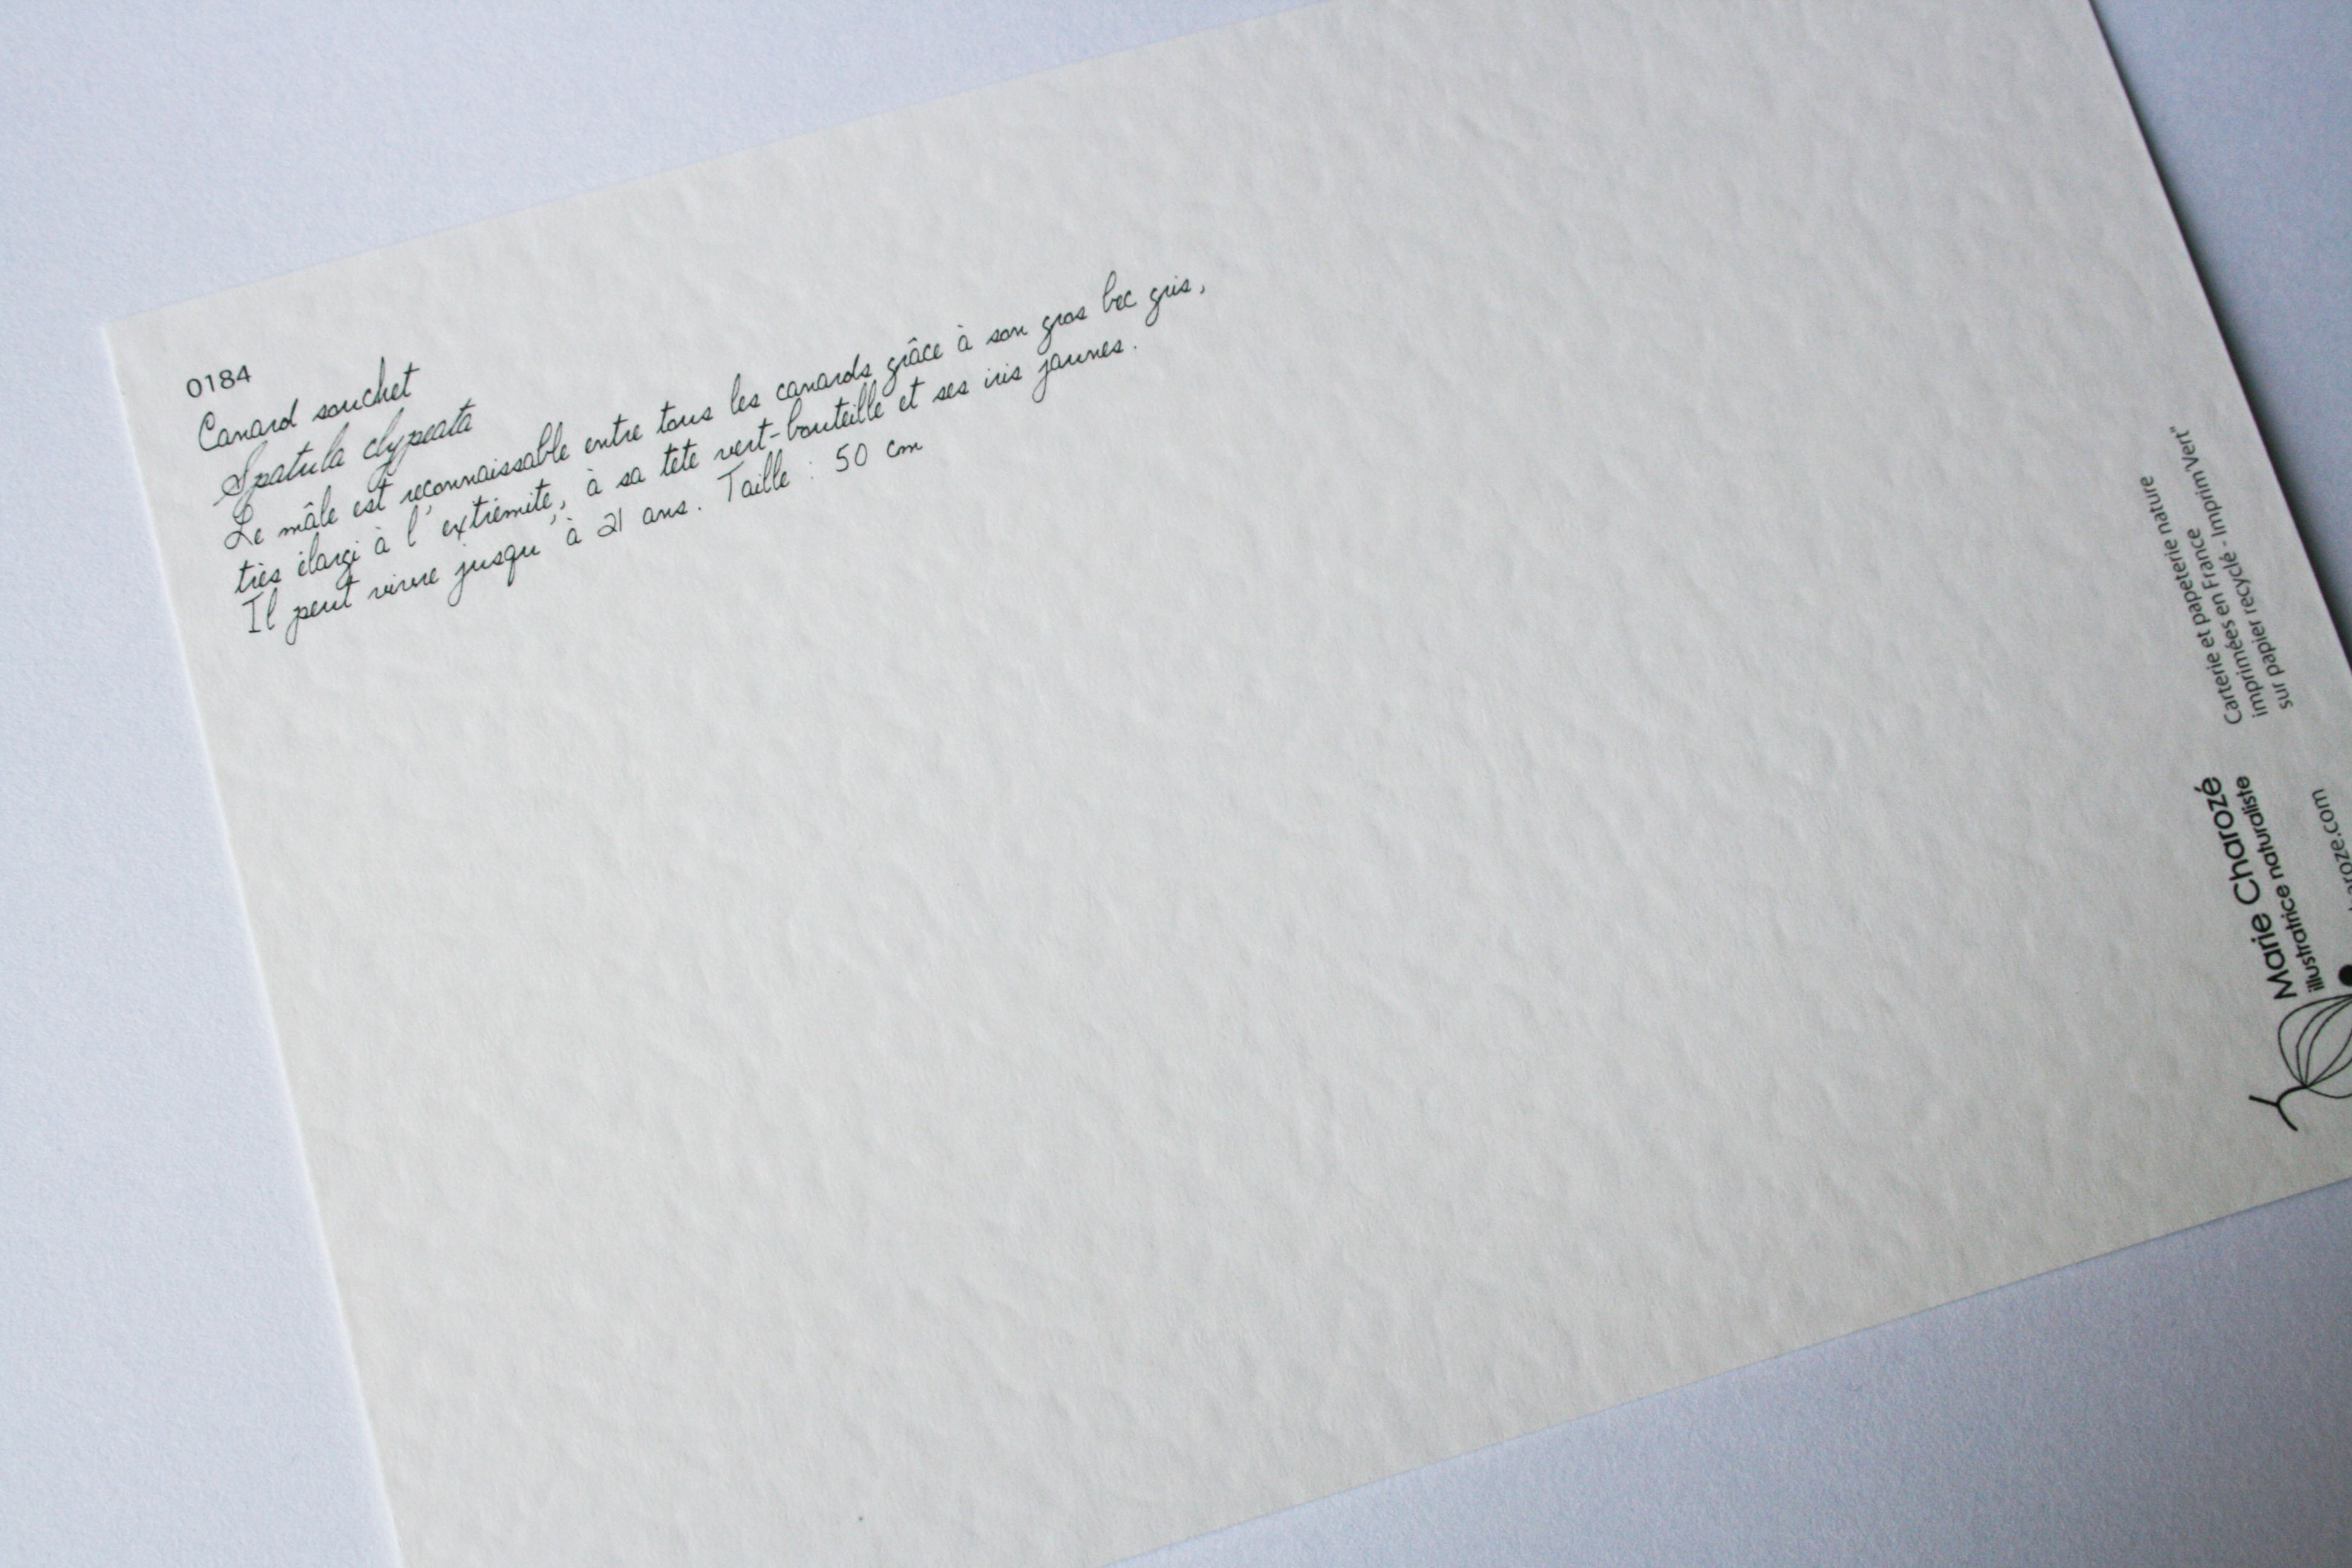 0184
Canard souchet
Spatula clypeata
Le mâle est reconnaissable entre tous les canards grâce à son gros bec gris,
très élargi à l'extrémité, à sa tête vert-bouteille et ses iris jaunes.
Il peut vivre jusqu'à 21 ans. Taille : 50 cm
Marie Charozé
illustratrice naturaliste
aroze.com
Carterie et papeterie nature
imprimées en France
sur papier recyclé - Imprim'Vert"